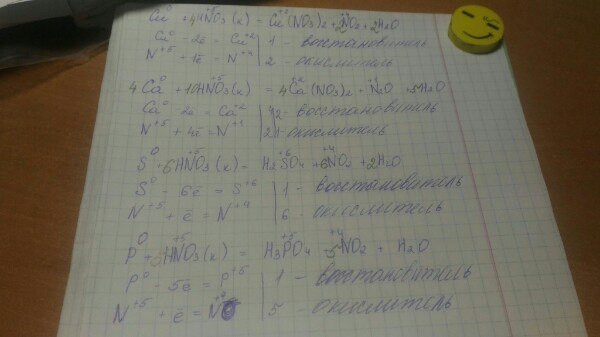 Cu⁰ + 4HN⁺⁵O₃(к) = Cu⁺²(NO₃)₂ + 2N⁺⁴O₂ + 2H₂O
Cu⁰ - 2ē = Cu⁺² | 1 - восстановитель
N⁺⁵ + 1ē = N⁺⁴ | 2 - окислитель
4Ca⁰ + 10HN⁺⁵O₃(к) = 4Ca⁺²(NO₃)₂ + N⁺¹₂O + 5H₂O
Ca⁰ - 2ē = Ca⁺² | 42 - восстановитель
N⁺⁵ + 4ē = N⁺¹ | 21 - окислитель
S⁰ + 6HN⁺⁵O₃(к) = H₂S⁺⁶O₄ + 6N⁺⁴O₂ + 2H₂O
S⁰ - 6ē = S⁺⁶ | 1 - восстановитель
N⁺⁵ + ē = N⁺⁴ | 6 - окислитель
P⁰ + 5HN⁺⁵O₃(к) = H₃P⁺⁵O₄ 5N⁺⁴O₂ + H₂O
P⁰ - 5ē = P⁺⁵ | 1 - восстановитель
N⁺⁵ + ē = N⁺⁴ | 5 - окислитель